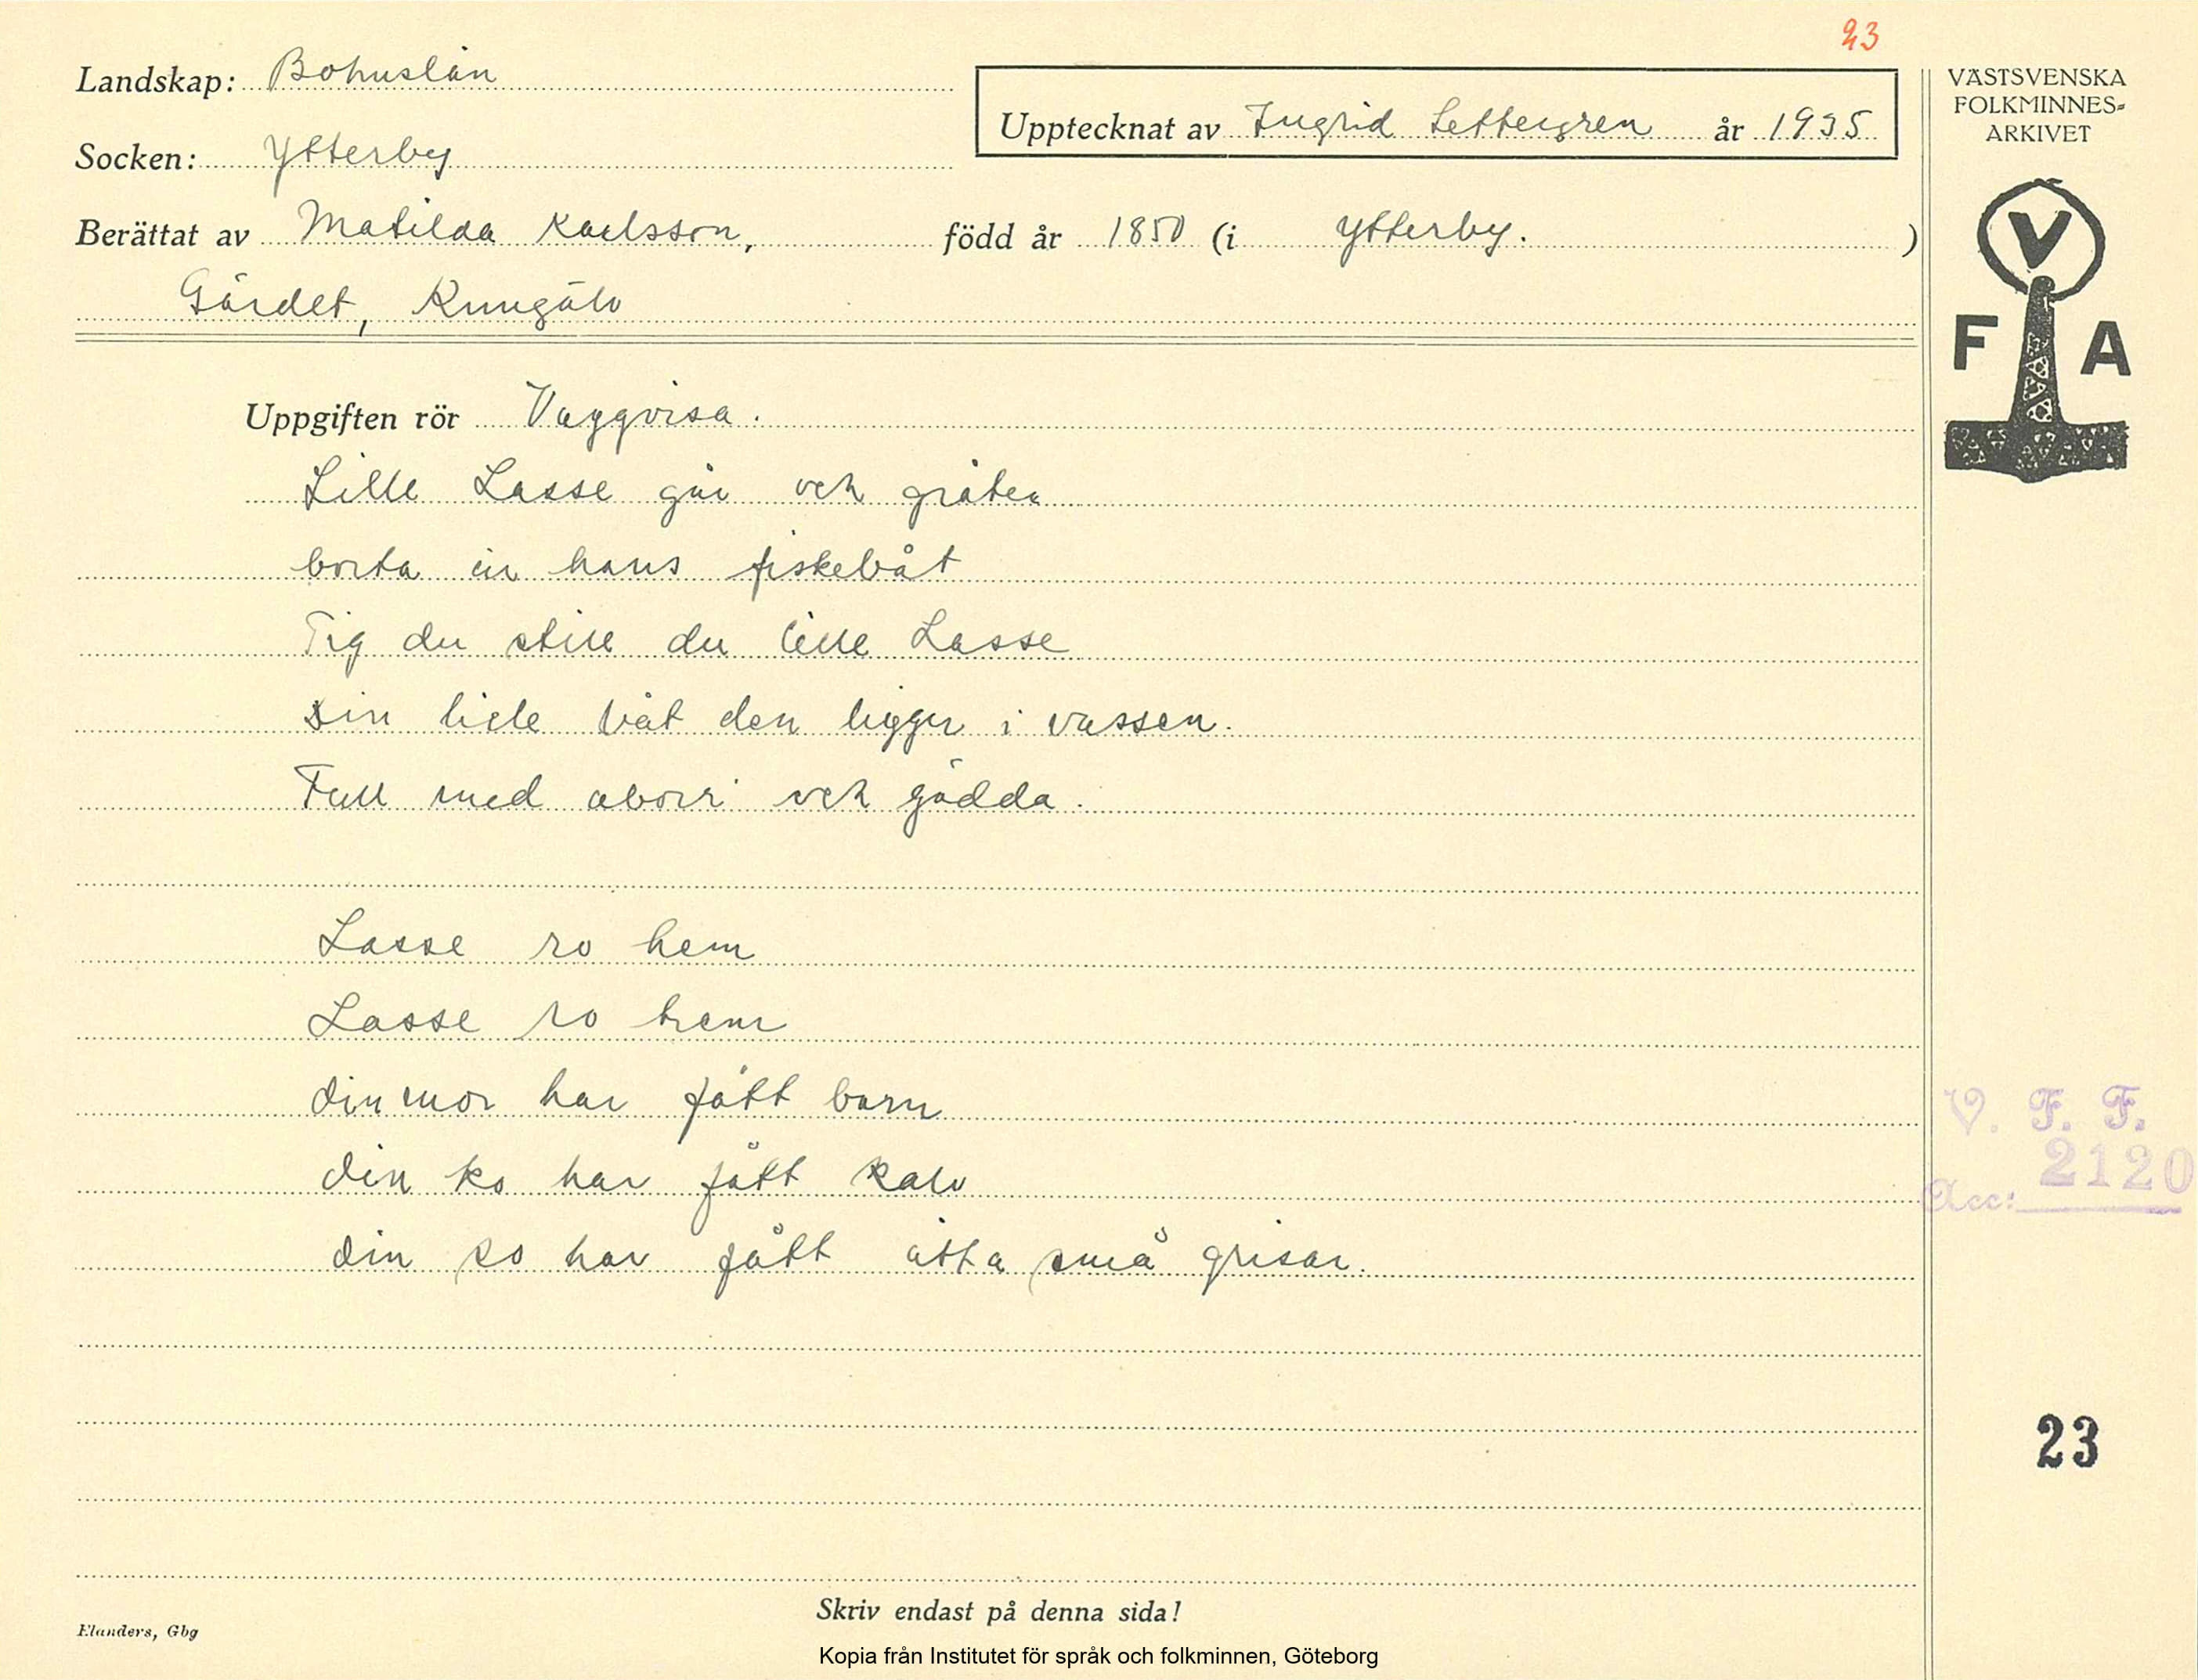 23
Landskap: Bohuslän
Upptecknat av Ingrid Settergren år 1935
Socken: Ytterby
Berättat av Matilda Karlsson, född år 1850 (i Ytterby. )
Gärdet, Kungälv
VÄSTSVENSKA
FOLKMINNES-
ARKIVET
V
F A
Uppgiften rör Vaggvisa.
Lille Lasse går och gråter
borta är hans fiskebåt
Tig du still du lille Lasse
Din lille båt den ligger i vassen.
Full med aborr och gädda.
Lasse ro hem
Lasse ro hem
din mor har fått barn
din ko har fått kalv
din so har fått åtta små grisar.
V. F. F.
Acc: 2120
23
Skriv endast på denna sida!
Elanders, Gbg
Kopia från Institutet för språk och folkminnen, Göteborg